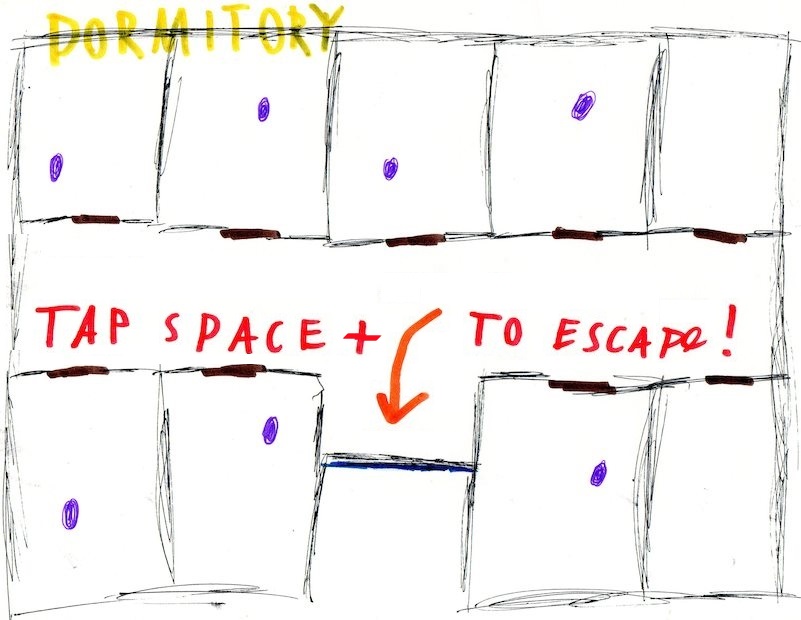 DORMITORY
TAP SPACE + TO ESCAPE!